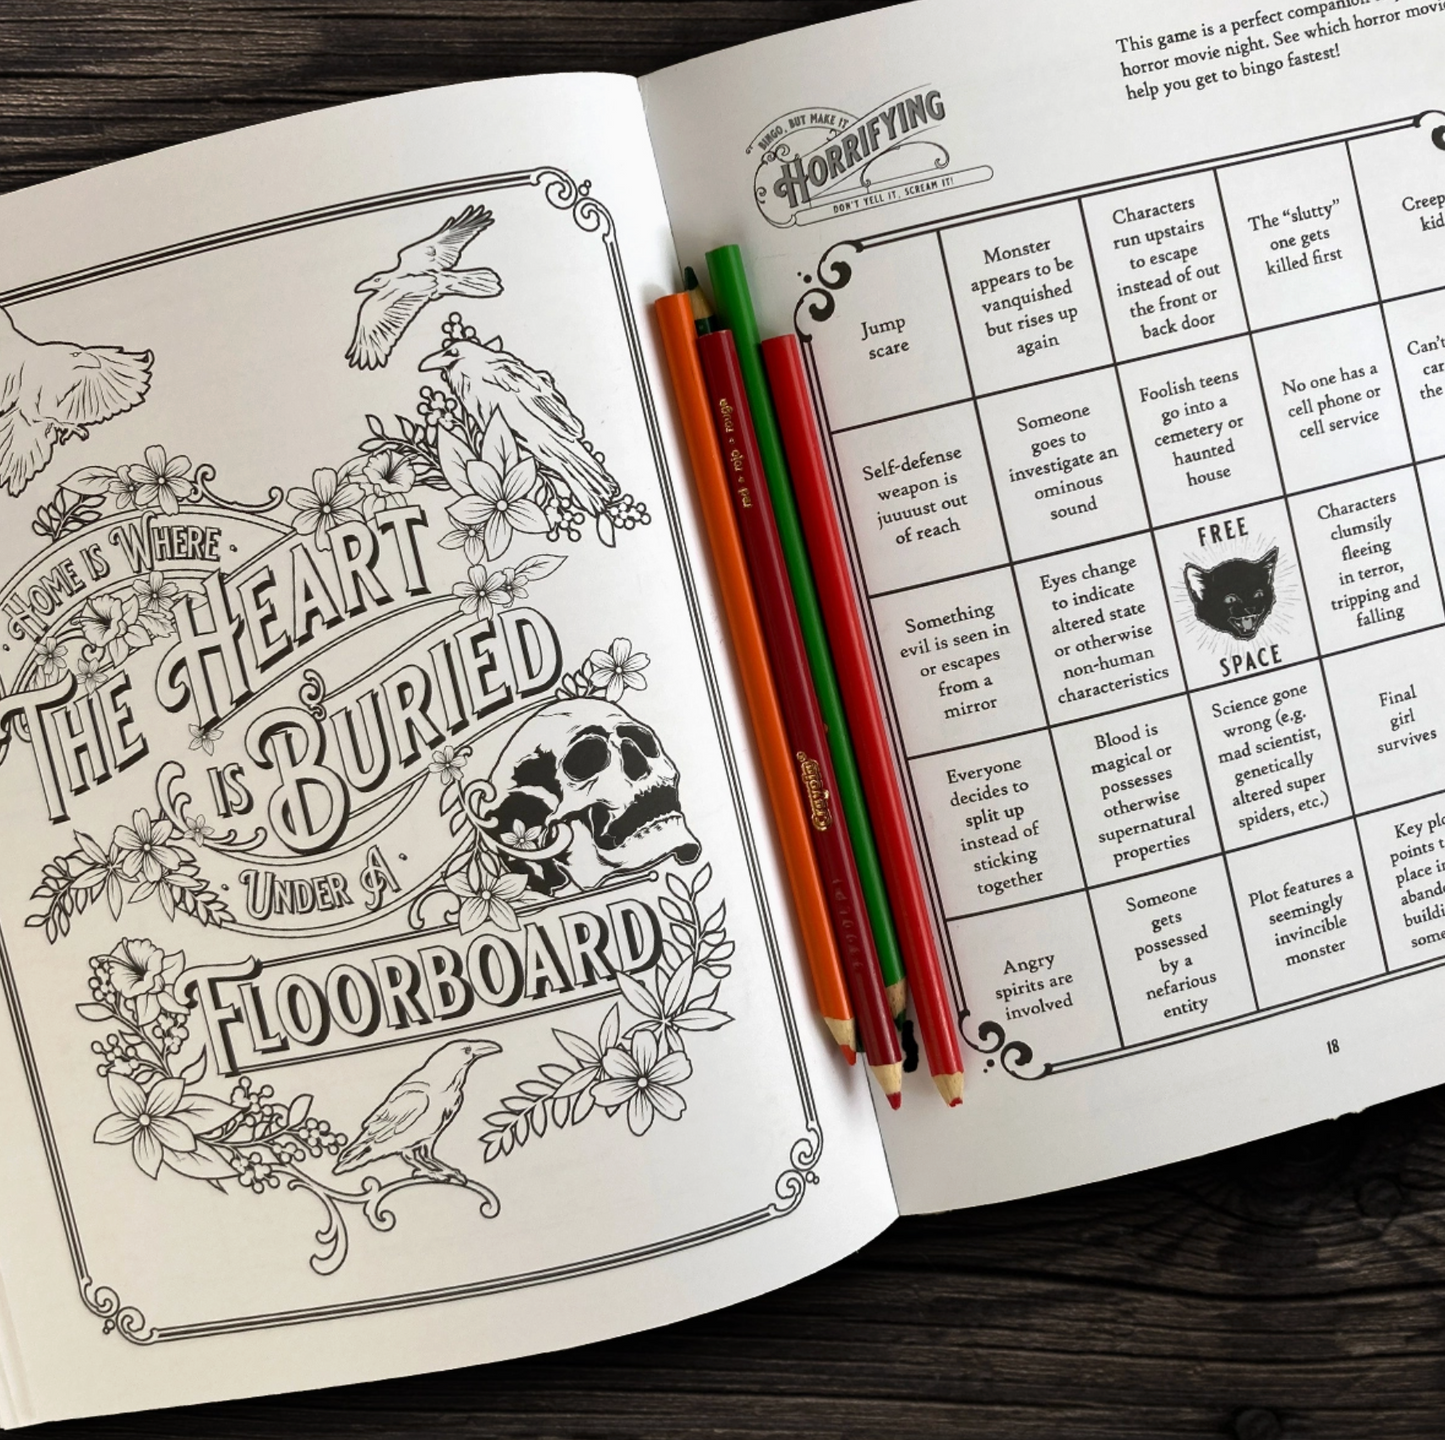 HOME IS WHERE
THE HEART
IS BURIED
UNDER A
FLOORBOARD
This game is a perfect companion
horror movie night. See which horror
help you get to bingo fastest!
BINGO, BUT MAKE IT
HORRIFYING
DON'T YELL IT, SCREAM IT!
Jump
scare
Monster
appears to be
vanquished
but rises up
again
Characters
run upstairs
to escape
instead of out
the front or
back door
The “slutty”
one gets
killed first
Self-defense
weapon is
juuuust out
of reach
Someone
goes to
investigate an
ominous
sound
Foolish teens
go into a
cemetery or
haunted
house
No one has a
cell phone or
cell service
Can't
the
Something
evil is seen in
or escapes
from a
mirror
Eyes change
to indicate
altered state
or otherwise
non-human
characteristics
FREE
SPACE
Characters
clumsily
fleeing
in terror,
tripping and
falling
Everyone
decides to
split up
instead of
sticking
together
Blood is
magical or
possesses
otherwise
supernatural
properties
Science gone
wrong (e.g.
mad scientist,
genetically
altered super
spiders, etc.)
Final
girl
survives
Angry
spirits are
involved
Someone
gets
possessed
by a
nefarious
entity
Plot features a
seemingly
invincible
monster
Key
points
place
18
red • rojo • rouge
Crayola